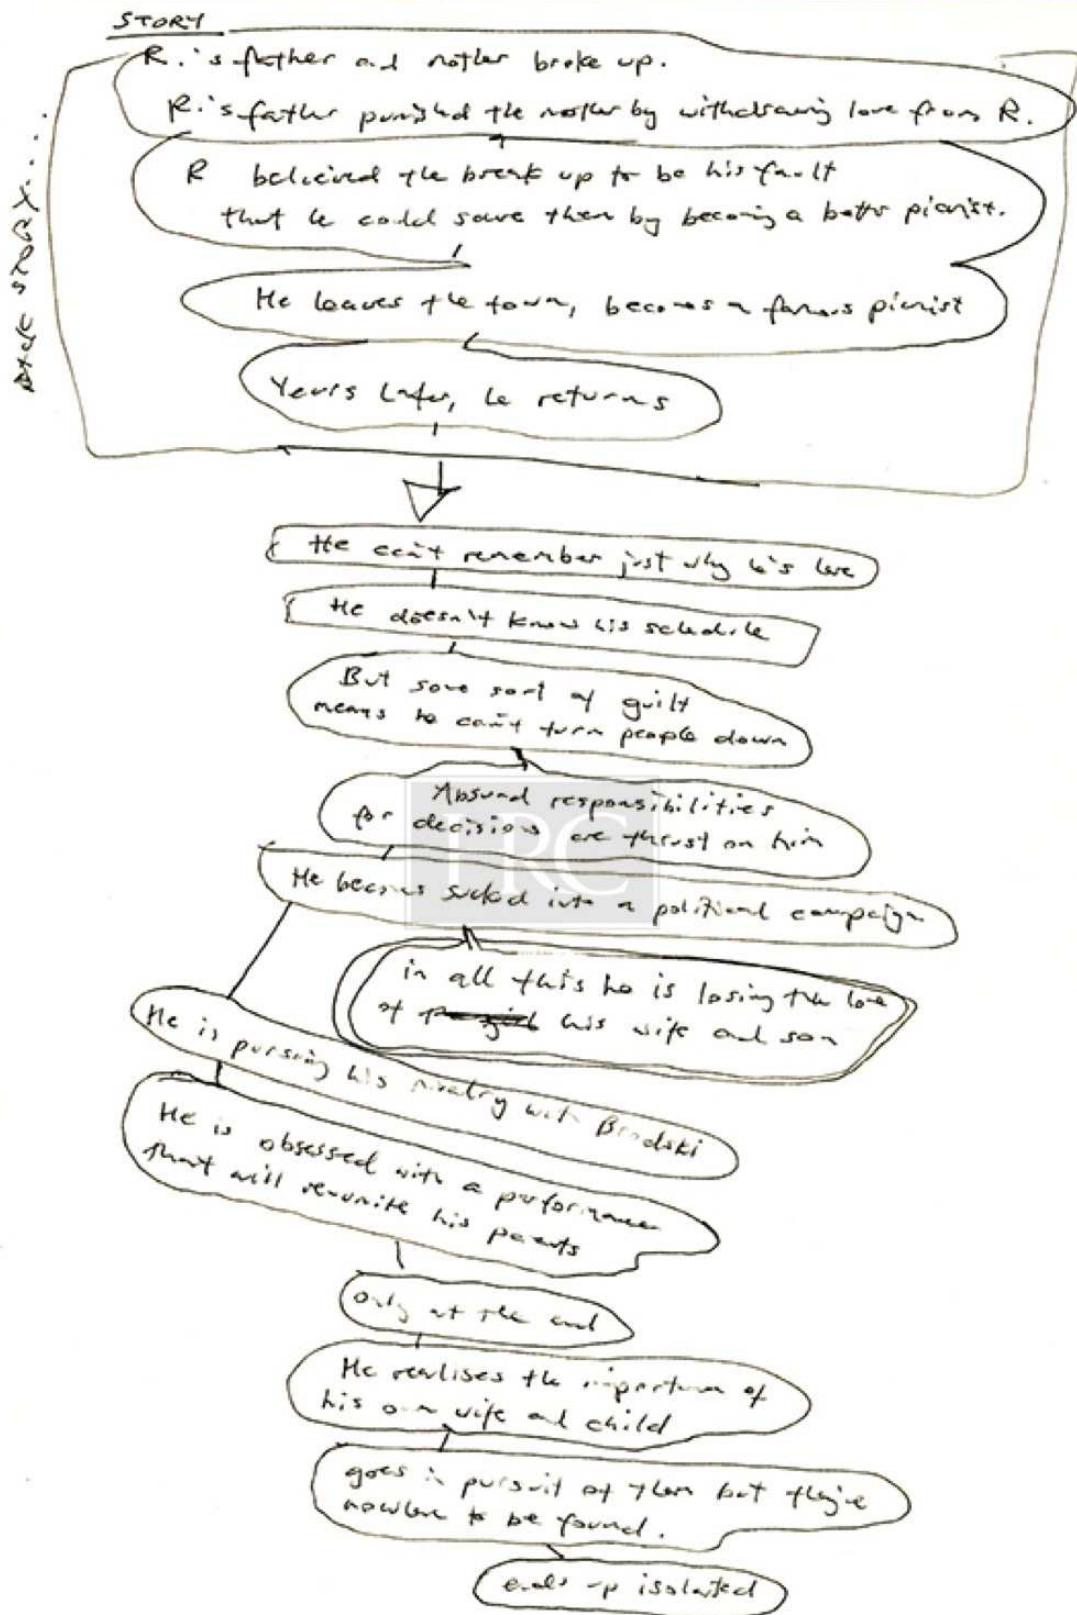 STORY
R.'s father and mother broke up.
R.'s father punished the mother by withdrawing love from R.
R believed the break up to be his fault
that he could save them by becoming a better pianist.
He leaves the town, becomes a famous pianist
Years later, he returns
BACK STORY....
He can't remember just why he's here
He doesn't know his schedule
But some sort of guilt
means he can't turn people down
Absurd responsibilities
for decisions are thrust on him
He becomes sucked into a political campaign
in all this he is losing the love
of his wife and son
He is pursuing his rivalry with Brodski
He is obsessed with a performance
that will re-unite his parents
only at the end
He realises the importance of
his own wife and child
goes in pursuit of them but they're
nowhere to be found.
ends up isolated
HRC